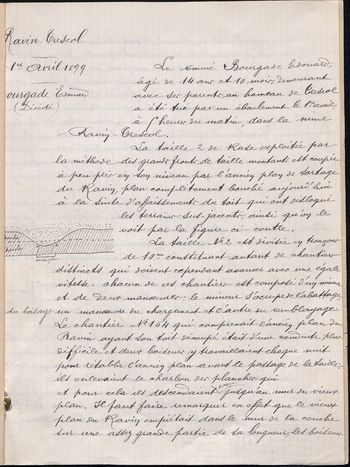 Ravin Trescol
1er Avril 1899
Bourgade Edouard
(Décédé)
Le nommé Bourgade Edouard,
âgé de 14 ans et 10 mois, demeurant
avec ses parents au hameau de Trescol
a été tué par un éboulement le 1er avril
à 5 heures du matin, dans la mine
Ravin Trescol.
La taille 2 de Rose exploitée par
la méthode des grands fronts de taille montants est coupée
à peu près en son niveau par l'ancien plan de sortage
du Ravin, plan complètement bouché aujourd'hui
à la suite d'affaissements du toit qui ont disloqué
les terrains sus-jacents, ainsi qu'on le
voit par la figure ci-contre.
La taille No 2 est divisée en tronçons
de 10m constituant autant de chantiers
distincts qui doivent cependant avancer avec une égale
vitesse. chacun de ces chantiers est composé d'un mineur
et de deux manœuvres: le mineur s'occupe de l'abattage,
du boisage un manœuvre du chargement et l'autre du remblayage.
Le chantier No 164 qui comprenait l'ancien plan du
Ravin ayant son toit découpé était d'une conduite plus
difficile et deux boiseurs y travaillaient chaque nuit
pour rétablir l'ancien plan avant le passage de la taille;
ils enlevaient le charbon des planches qui
et pour cela ils descendaient jusqu'au mur du vieux
plan. Il faut faire remarquer en effet que le vieux
plan du Ravin empiétait dans le mur de la couche
sur une assez grande partie de sa longueur; les boiseurs